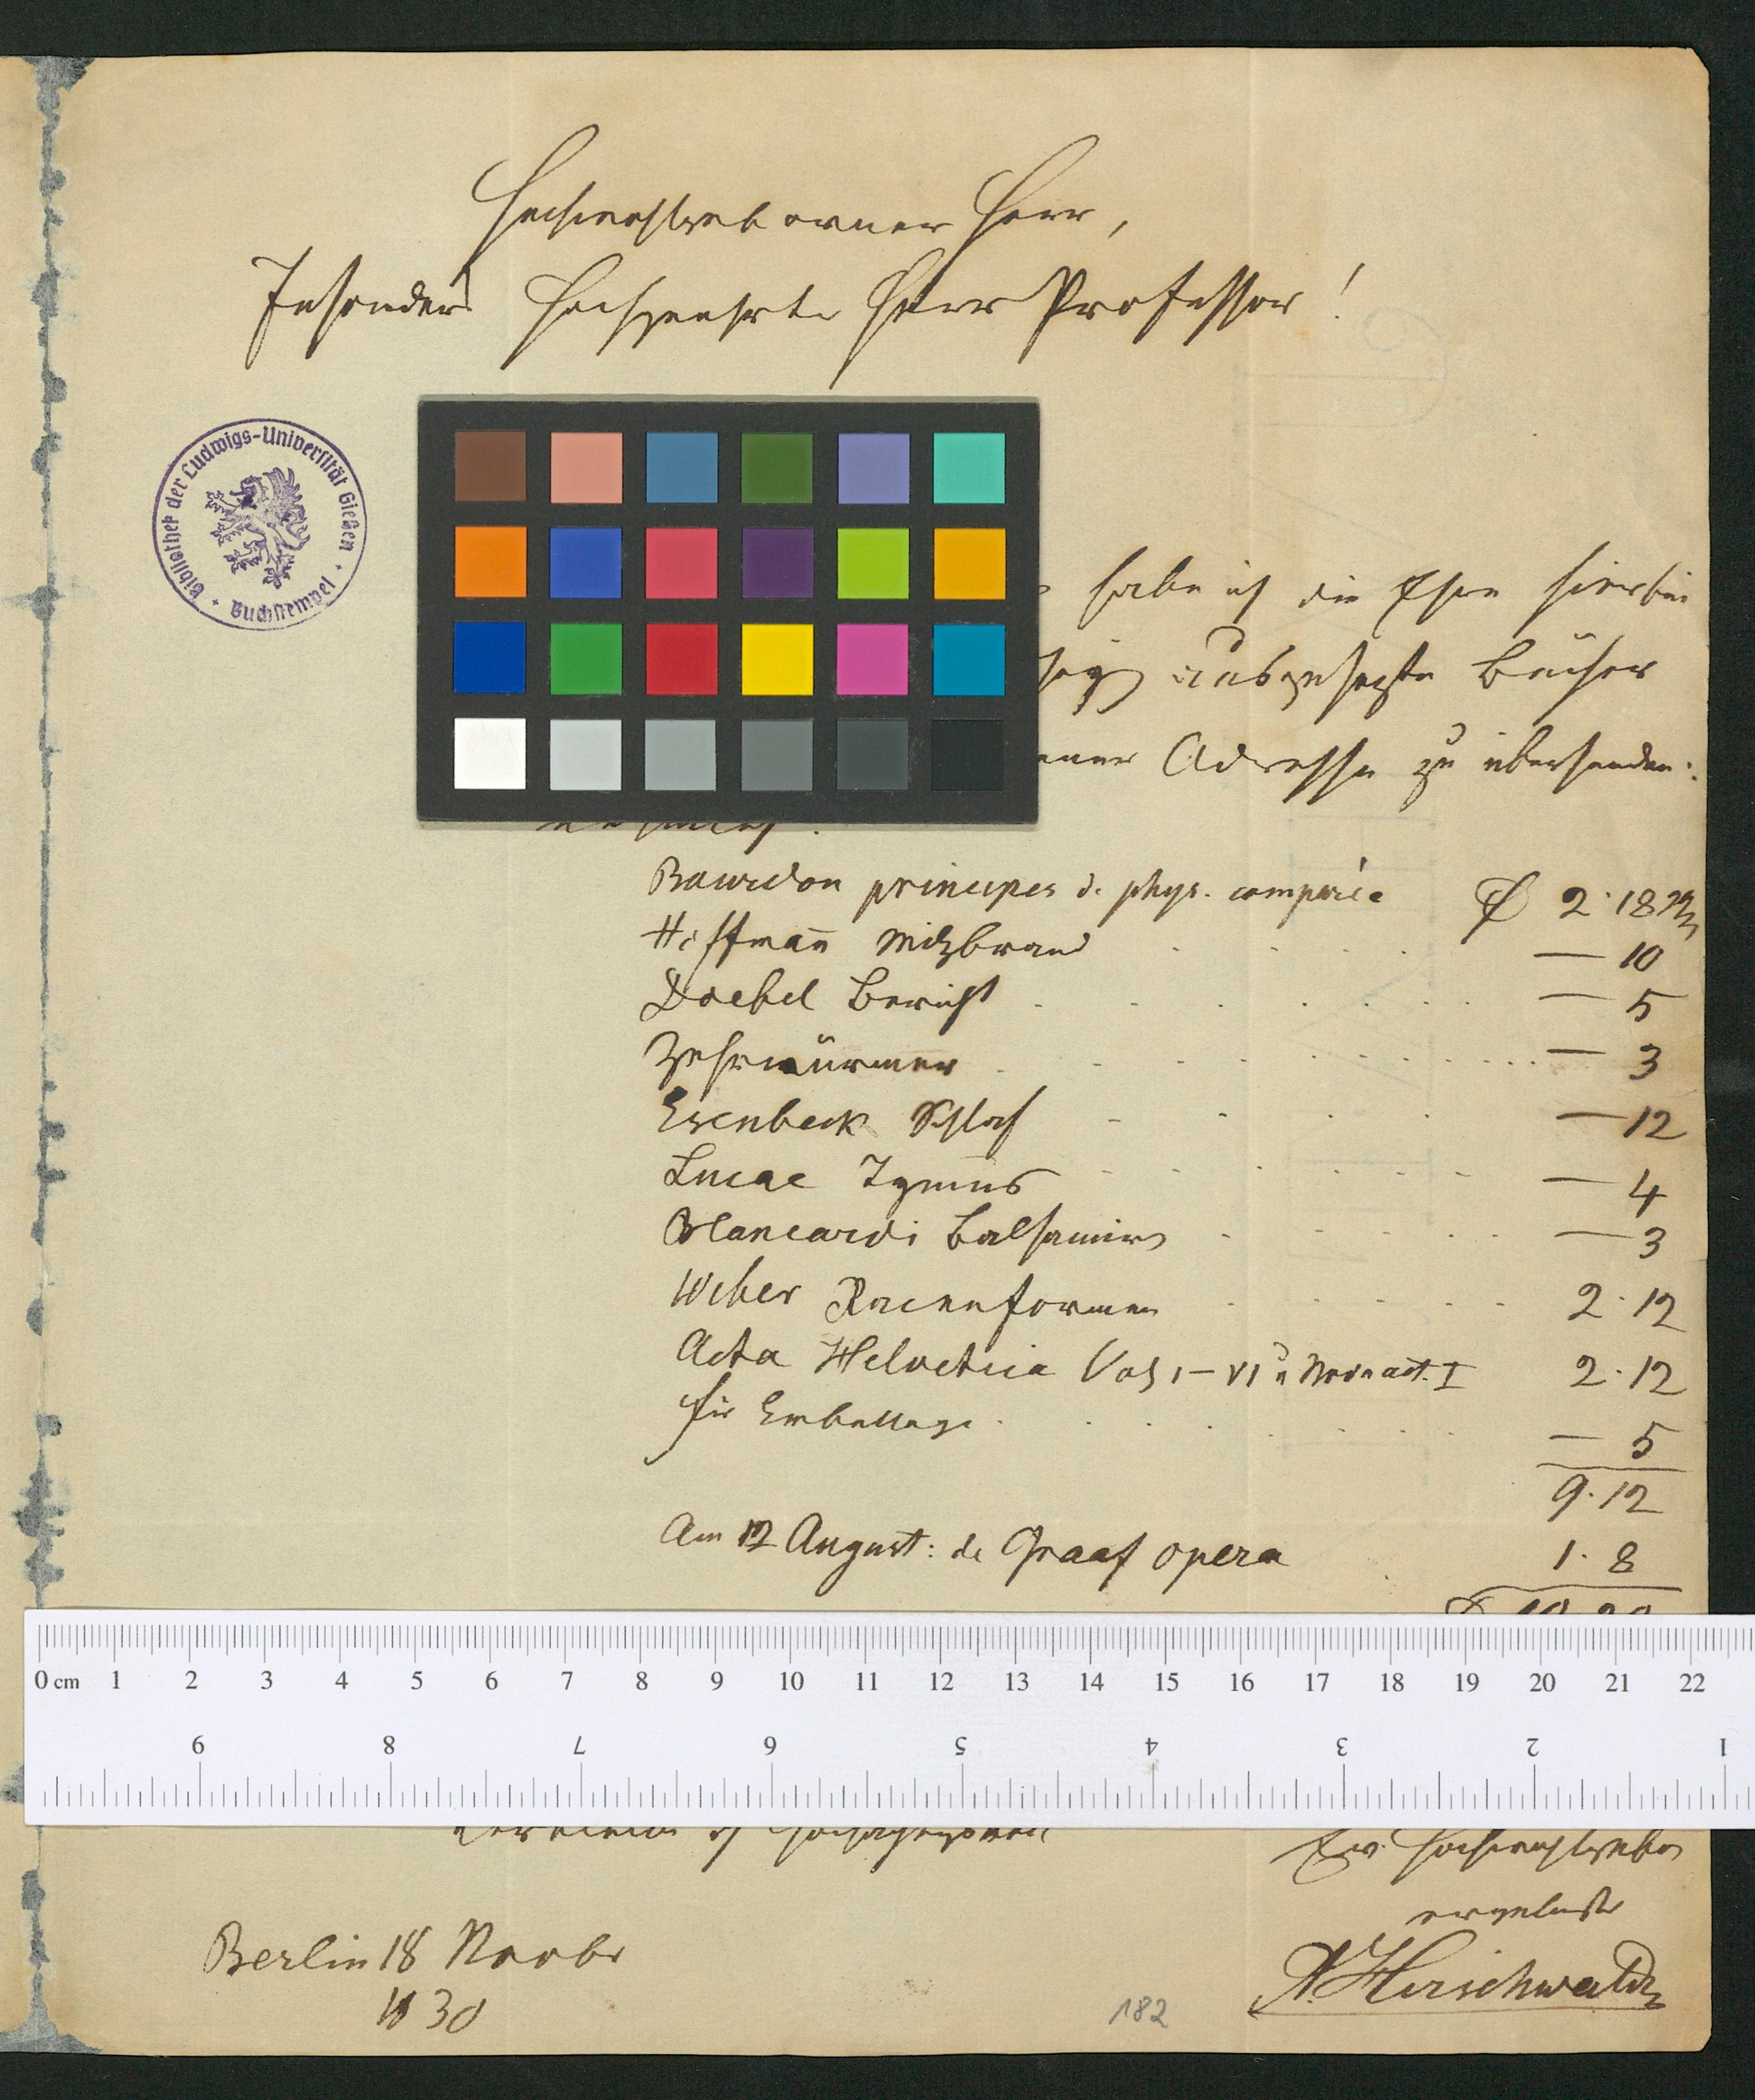 Hochwohlgeborner Herr,
Insonders Hochgeehrter Herr Professor!
Bibliothek der Ludwigs-Universität Gießen
Buchstempel
habe ich die Ehre hierbei
ausgesuchte Bücher
Adresse zu übersenden:
Bourdon principes d. phys. comparée 2. 18
Hoffmañ Milzbrand — 10
Doebel Bericht — 5
Zehrwürmer — 3
Esenbeck Schlaf — 12
Lucae Tymus — 4
Blancardi Balsamir — 3
Weber Racenformen 2. 12
Acta Helvetica Vol I—VI u Nova act. I 2. 12
für Emballage — 5
9. 12
Am 12 August: de Graaf opera 1. 8
0 cm 1 2 3 4 5 6 7 8 9 10 11 12 13 14 15 16 17 18 19 20 21 22
9 8 7 6 5 4 3 2 1
Ew. Hochwohlgebor
ergebenster
Berlin 18 Novbr
1830
A. Hirschwald
182